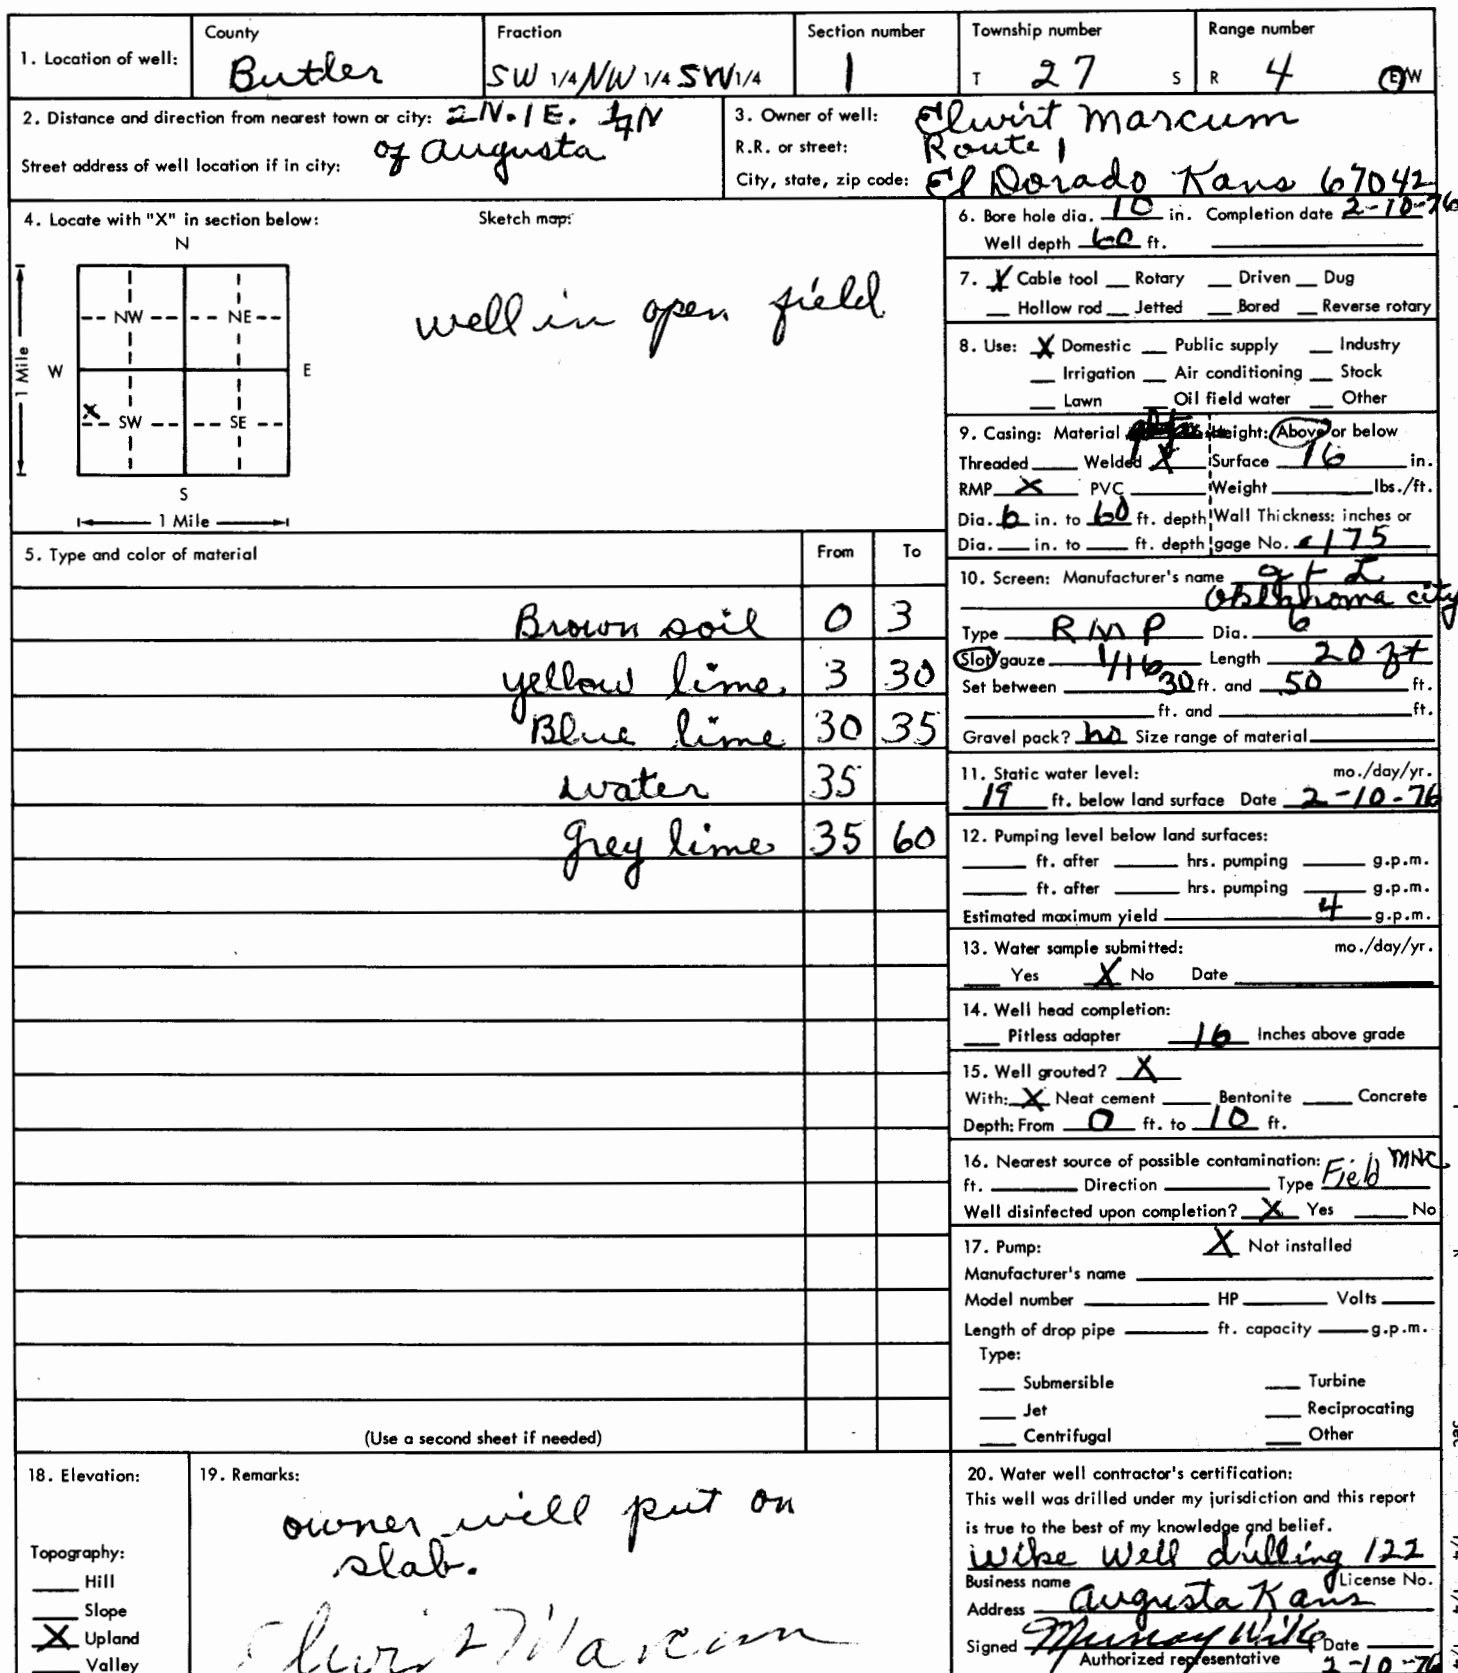 County Fraction Section number Township number Range number
1. Location of well: Butler SW 1/4 NW 1/4 SW 1/4 1 T 27 S R 4 E/W
2. Distance and direction from nearest town or city: 2N. 1E. 1/4N
of Augusta
Street address of well location if in city:
3. Owner of well: Elwirt Marcum
R.R. or street: Route 1
City, state, zip code: El Dorado Kans 67042
4. Locate with "X" in section below: Sketch map:
N
NW NE
W E
1 Mile
X
SW SE
S
1 Mile
well in open field
5. Type and color of material From To
Brown soil 0 3
yellow lime 3 30
Blue lime 30 35
water 35
grey lime 35 60
(Use a second sheet if needed)
6. Bore hole dia. 10 in. Completion date 2-10-76
Well depth 60 ft.
7. X Cable tool __ Rotary __ Driven __ Dug
__ Hollow rod __ Jetted __ Bored __ Reverse rotary
8. Use: X Domestic __ Public supply __ Industry
__ Irrigation __ Air conditioning __ Stock
__ Lawn __ Oil field water __ Other
9. Casing: Material Height: Above or below
Threaded ____ Welded X Surface 16 in.
RMP X PVC ____ Weight ____ lbs./ft.
Dia. 6 in. to 60 ft. depth Wall Thickness: inches or
Dia. __ in. to __ ft. depth gage No. .175
10. Screen: Manufacturer's name
Oklahoma city
Type RMP Dia. 6
Slot/gauze 1/16 Length 20 ft
Set between 30 ft. and 50 ft.
____ ft. and ____ ft.
Gravel pack? no Size range of material ____
11. Static water level: mo./day/yr.
19 ft. below land surface Date 2-10-76
12. Pumping level below land surfaces:
____ ft. after ____ hrs. pumping ____ g.p.m.
____ ft. after ____ hrs. pumping ____ g.p.m.
Estimated maximum yield 4 g.p.m.
13. Water sample submitted: mo./day/yr.
__ Yes X No Date ____
14. Well head completion:
__ Pitless adapter 16 Inches above grade
15. Well grouted? X
With: X Neat cement __ Bentonite __ Concrete
Depth: From 0 ft. to 10 ft.
16. Nearest source of possible contamination:
ft. ____ Direction ____ Type Field MNC
Well disinfected upon completion? X Yes __ No
17. Pump: X Not installed
Manufacturer's name ____
Model number ____ HP ____ Volts ____
Length of drop pipe ____ ft. capacity ____ g.p.m.
Type:
__ Submersible __ Turbine
__ Jet __ Reciprocating
__ Centrifugal __ Other
18. Elevation:
Topography:
__ Hill
__ Slope
X Upland
__ Valley
19. Remarks:
owner will put on
slab.
Elwirt Marcum
20. Water well contractor's certification:
This well was drilled under my jurisdiction and this report
is true to the best of my knowledge and belief.
Wike Well drilling 122
Business name License No.
Address Augusta Kans
Signed Murray Wike Date
Authorized representative 2-10-76